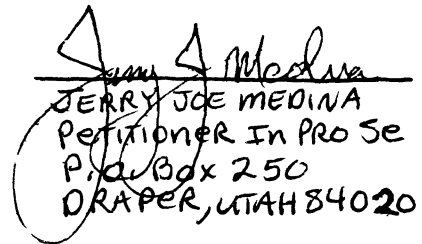 Jerry J Medina
JERRY JOE MEDINA
PetitioneR In PRO Se
P.O. Box 250
DRAPER, UTAH 84020